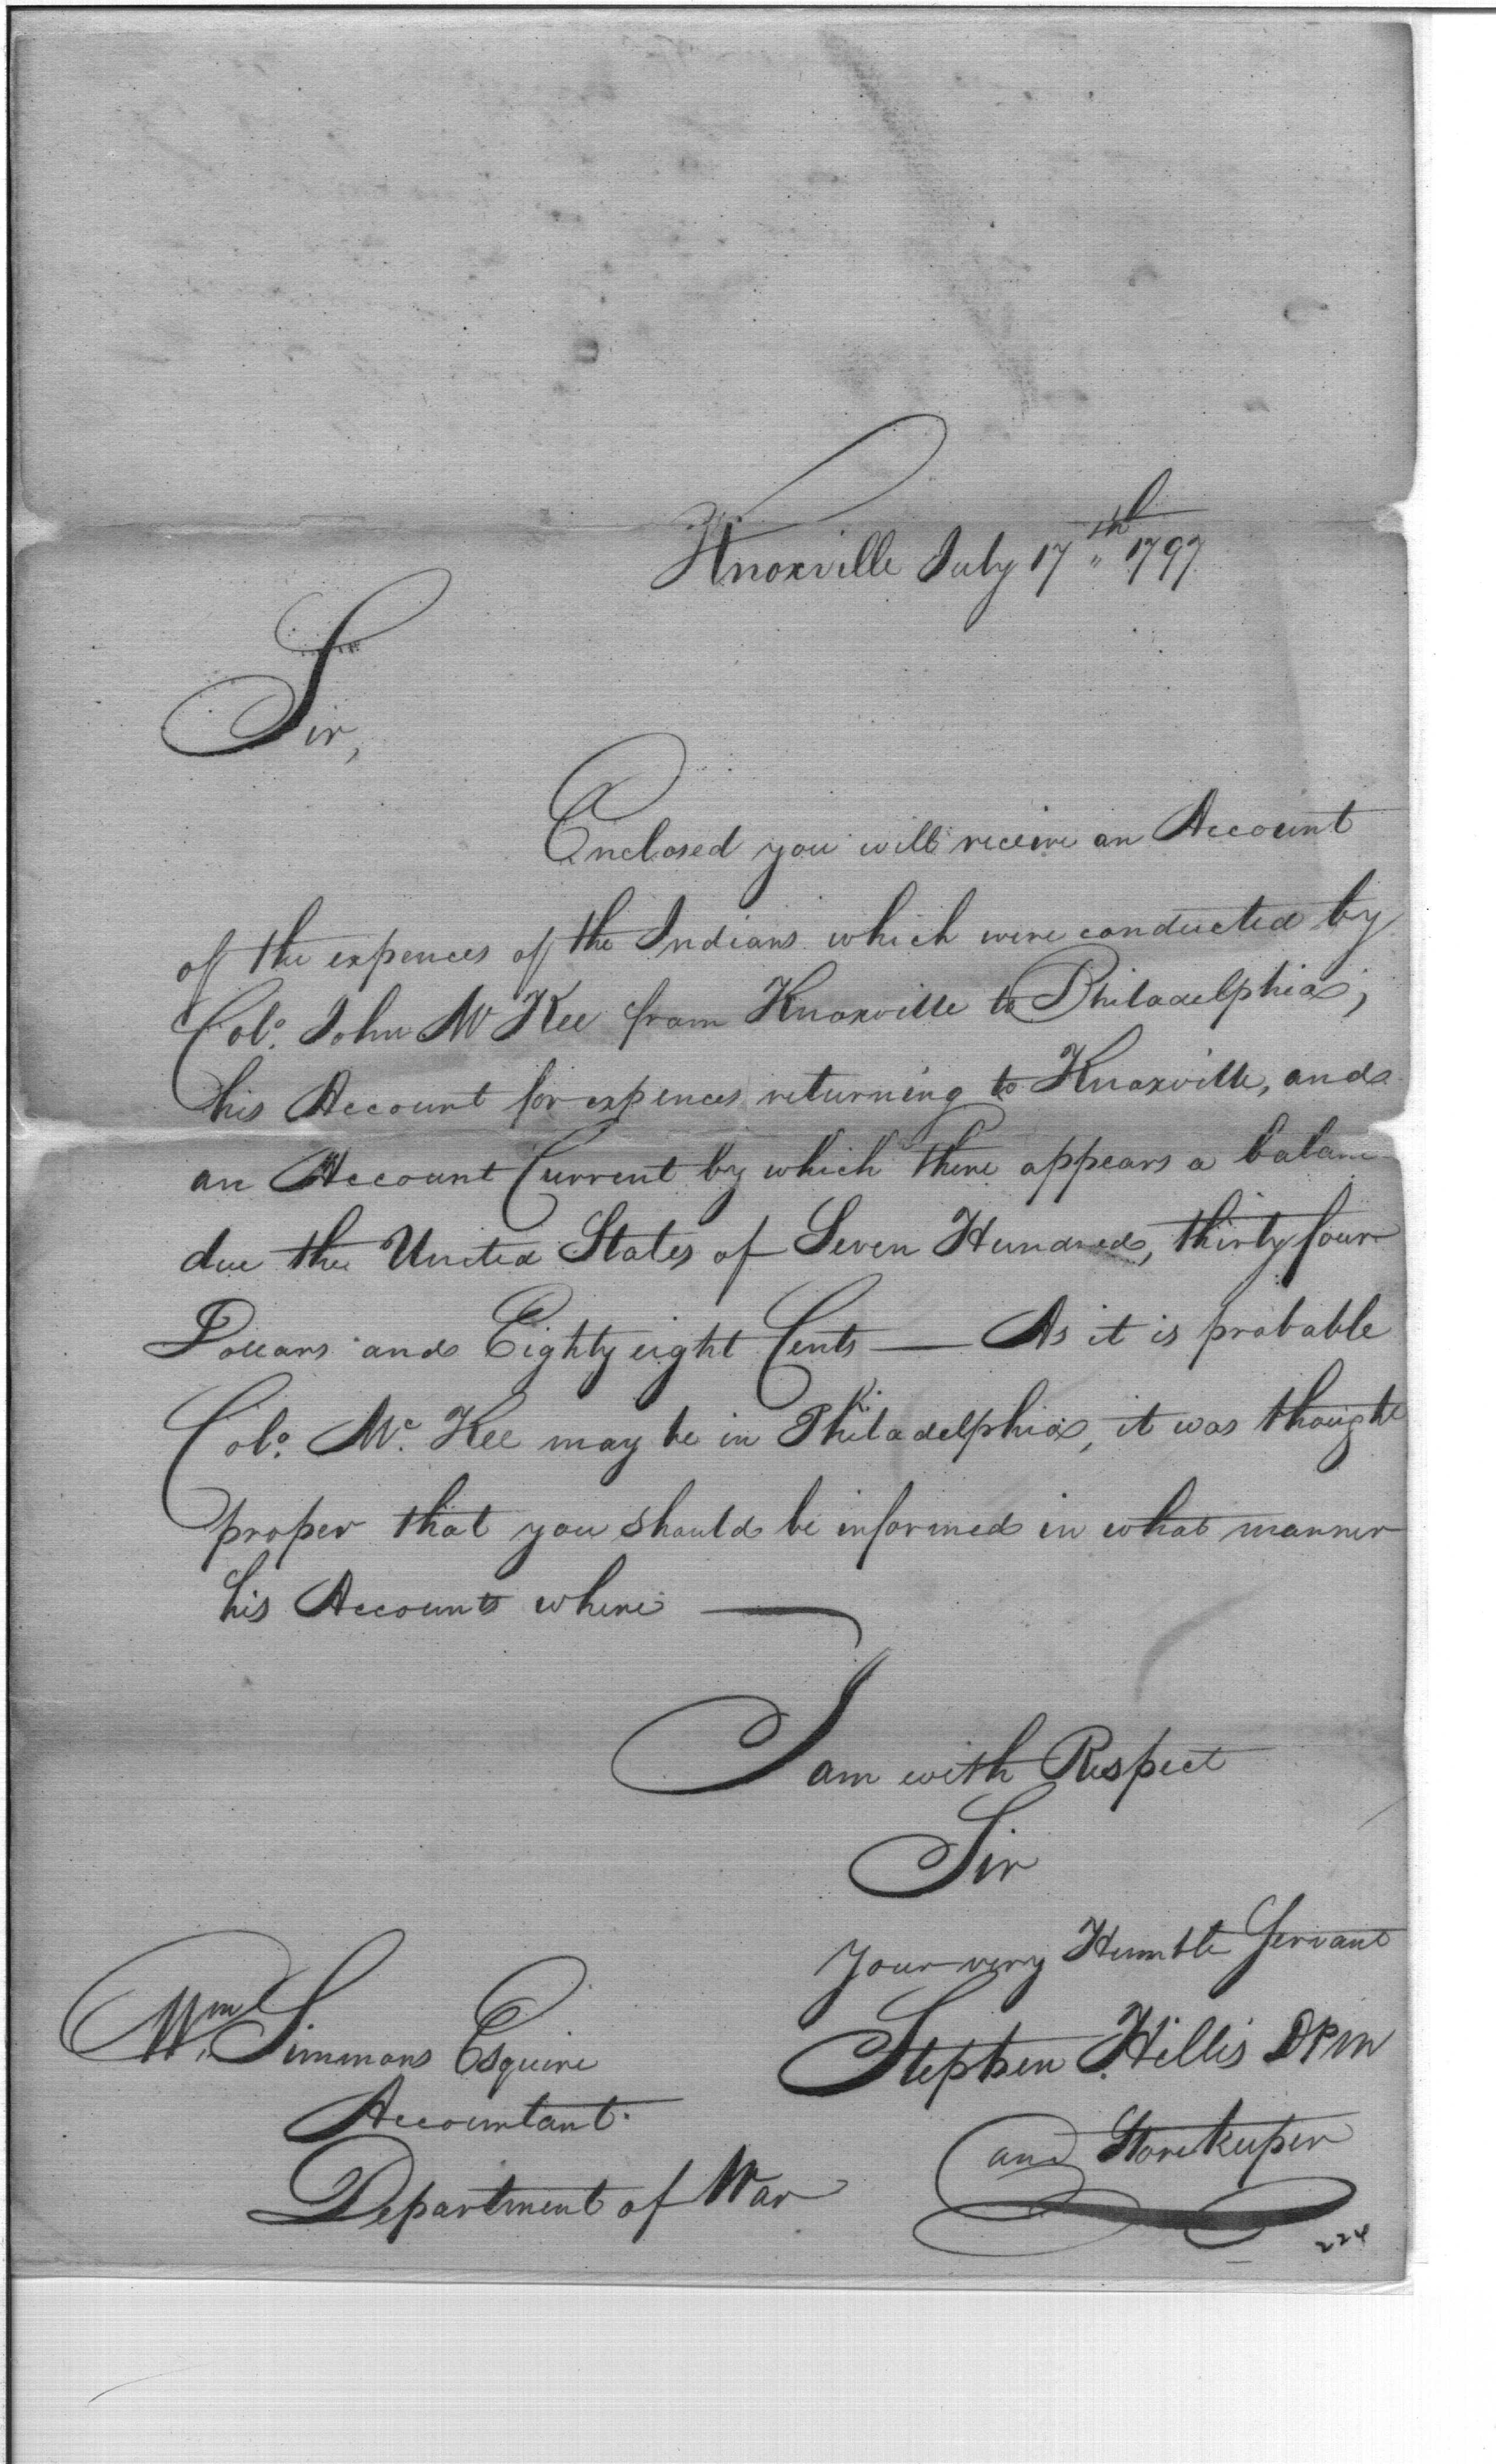 Knoxville July 17th 1797
Sir,
Enclosed you will receive an Account
of the expences of the Indians which were conducted by
Colo. John McKee from Knoxville to Philadelphia,
his Account for expences returning to Knoxville, and
an Account Current by which there appears a balance
due the United States of Seven Hundred, thirty four
Dollars and Eighty eight Cents — As it is probable
Colo. Mc. Kee may be in Philadelphia, it was thought
proper that you should be informed in what manner
his Accounts where —
I am with Respect
Sir
Your very Humble Servant
Stephen Hillis DPM
and Storekeeper
Wm. Simmons Esquire
Accountant
Department of War
224